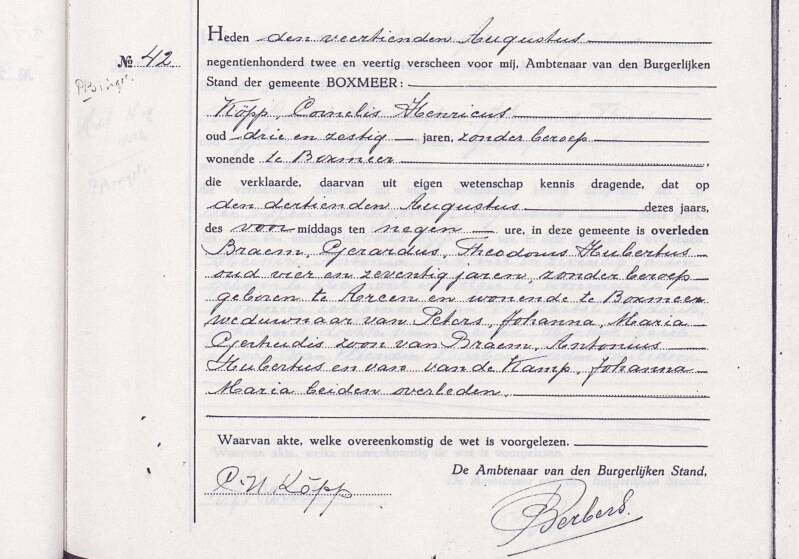 Heden den veertienden Augustus
№ 42.
negentienhonderd twee en veertig verscheen voor mij, Ambtenaar van den Burgerlijken
Stand der gemeente BOXMEER:
Köpp, Cornelis Henricus
oud drie en zestig jaren, zonder beroep
wonende te Boxmeer,
die verklaarde, daarvan uit eigen wetenschap kennis dragende, dat op
den dertienden Augustus dezes jaars,
des voor middags ten negen ure, in deze gemeente is overleden
Braem, Gerardus, Theodorus Hubertus
oud vier en zeventig jaren, zonder beroep
geboren te Arcen en wonende te Boxmeer
weduwnaar van Peters, Johanna, Maria
Gertrudis zoon van Braem, Antonius
Hubertus en van van de Kamp, Johanna
Maria beiden overleden.
Waarvan akte, welke overeenkomstig de wet is voorgelezen.
De Ambtenaar van den Burgerlijken Stand,
C. H. Köpp
Berbers.